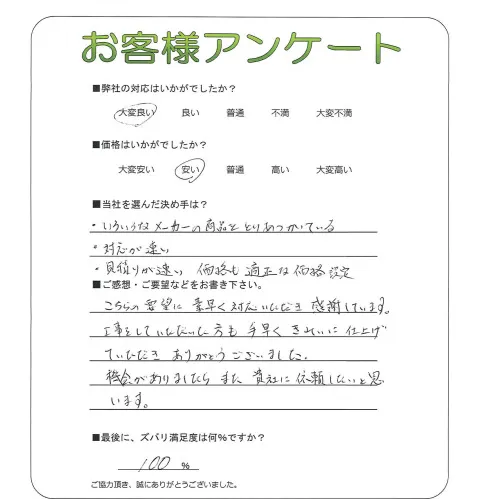 お客様アンケート
■弊社の対応はいかがでしたか？
大変良い 良い 普通 不満 大変不満
■価格はいかがでしたか？
大変安い 安い 普通 高い 大変高い
■当社を選んだ決め手は？
・いろいろなメーカーの商品をとりあつかている
・対応が速い
・見積りが速い 価格も適正な価格設定
■ご感想・ご要望などをお書き下さい。
こちらの要望に素早く対応いただき感謝しています。
工事をしていただいた方も手早くきれいに仕上げ
ていただきありがとうございました。
機会がありましたらまた貴社に依頼したいと思
います。
■最後に、ズバリ満足度は何％ですか？
100 %
ご協力頂き、誠にありがとうございました。